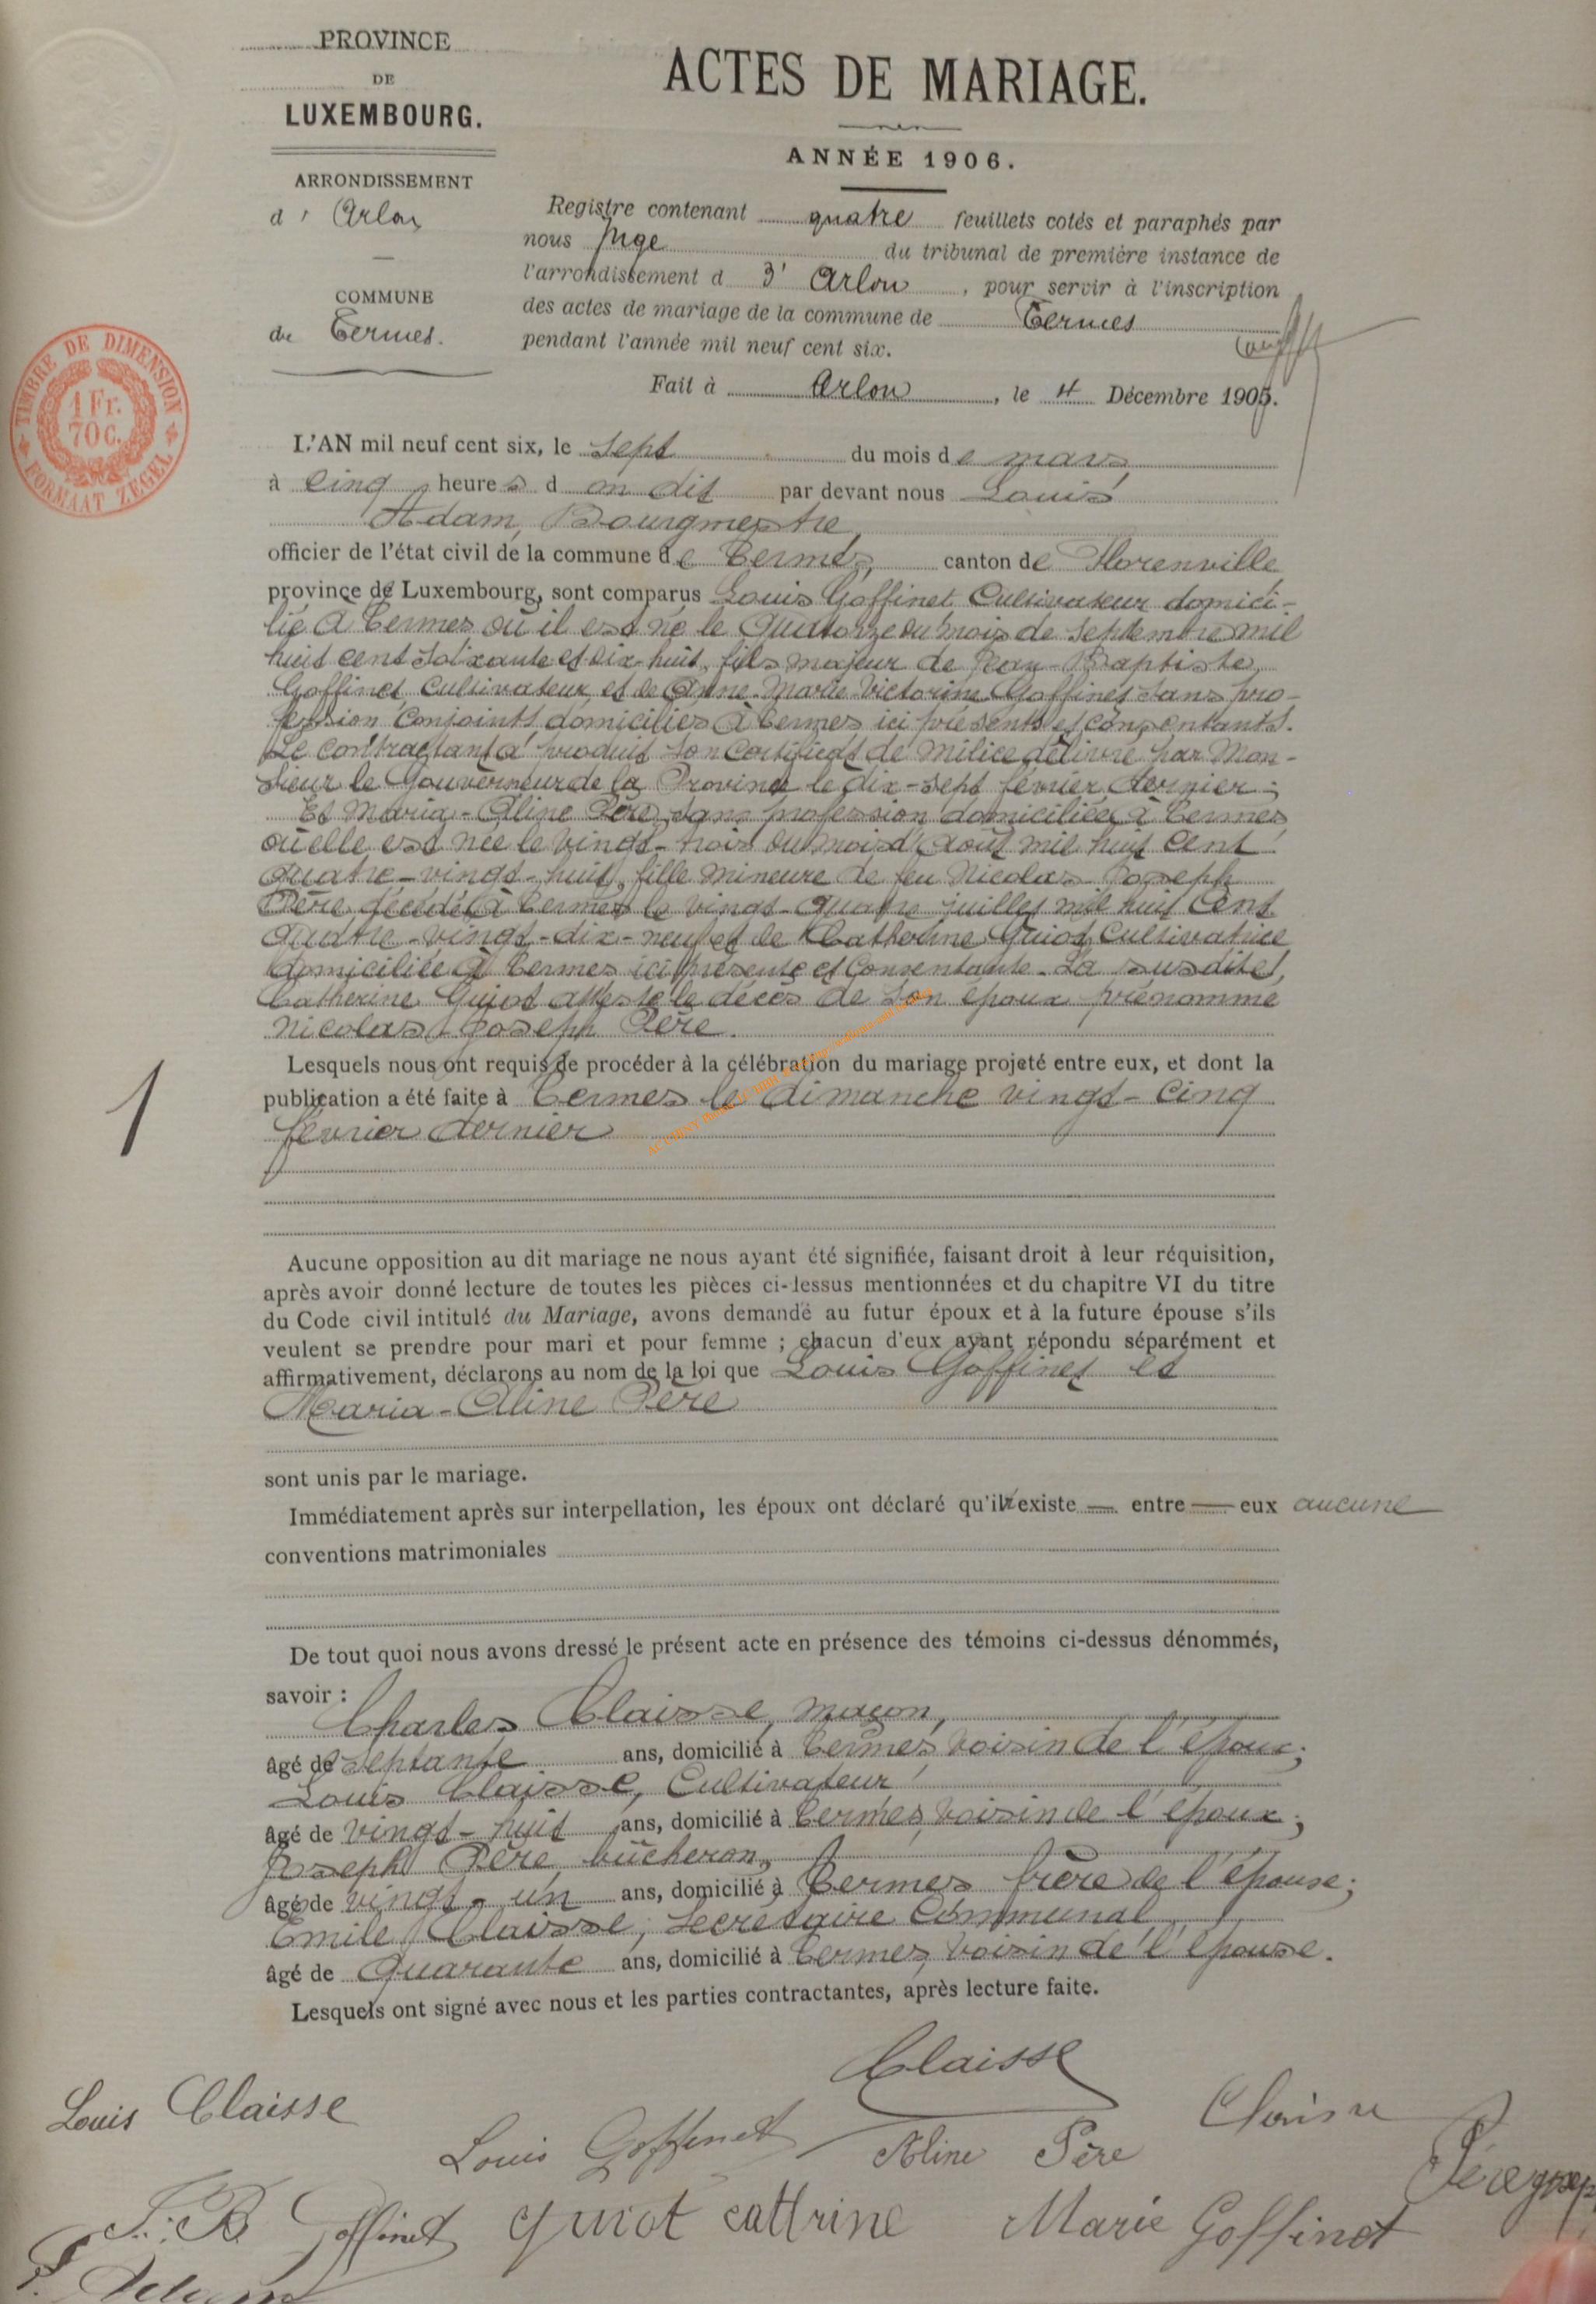 PROVINCE
DE
LUXEMBOURG.
ARRONDISSEMENT
d' Arlon
COMMUNE
de Termes.
TIMBRE DE DIMENSION
1 Fr.
70 C.
FORMAAT ZEGEL
ACTES DE MARIAGE.
ANNÉE 1906.
Registre contenant quatre feuillets cotés et paraphés par
nous Juge du tribunal de première instance de
l'arrondissement d' Arlon, pour servir à l'inscription
des actes de mariage de la commune de Termes
pendant l'année mil neuf cent six.
Fait à Arlon, le 4 Décembre 1905.
L'AN mil neuf cent six, le sept du mois de mars,
à cinq heures d par devant nous Louis
Adam, Bourgmestre,
officier de l'état civil de la commune de Termes, canton de Florenville
province de Luxembourg, sont comparus Louis Goffinet Cultivateur domici-
lié à Termes où il est né le Quatorze du mois de Septembre mil
huit cent soixante et dix-huit, fils majeur de Jean-Baptiste
Goffinet, Cultivateur, et de Anne-Marie-Victorine Goffinet sans pro-
fession conjoints, domiciliés à Termes ici présents et consentants.
Le contractant a produit son Certificat de Milice délivré par Mon-
sieur le Gouverneur de la Province le dix-sept février dernier;
Et Maria-Aline Père, sans profession domiciliée à Termes
où elle est née le vingt-trois du mois d'Août mil huit cent
quatre-vingt-huit, fille mineure de feu Nicolas Joseph
Père décédé à Termes le vingt-quatre juillet mil huit cent
quatre-vingt-dix-neuf et de Catherine Guiot, Cultivatrice
domiciliée à Termes ici présente et consentante. La susdite,
Catherine Guiot atteste le décès de son époux prénommé
Nicolas-Joseph Père.
Lesquels nous ont requis de procéder à la célébration du mariage projeté entre eux, et dont la
publication a été faite à Termes le dimanche vingt-cinq
février dernier
1
Aucune opposition au dit mariage ne nous ayant été signifiée, faisant droit à leur réquisition,
après avoir donné lecture de toutes les pièces ci-dessus mentionnées et du chapitre VI du titre
du Code civil intitulé du Mariage, avons demandé au futur époux et à la future épouse s'ils
veulent se prendre pour mari et pour femme ; chacun d'eux ayant répondu séparément et
affirmativement, déclarons au nom de la loi que Louis Goffinet et
Maria-Aline Père
sont unis par le mariage.
Immédiatement après sur interpellation, les époux ont déclaré qu'il n'existe — entre — eux aucune
conventions matrimoniales
De tout quoi nous avons dressé le présent acte en présence des témoins ci-dessus dénommés,
savoir :
Charles Claisse, maçon,
âgé de septante ans, domicilié à Termes, voisin de l'époux;
Louis Claisse, Cultivateur
âgé de vingt-huit ans, domicilié à Termes, voisin de l'époux;
Joseph Père, bûcheron,
âgé de vingt-un ans, domicilié à Termes frère de l'épouse;
Emile Claisse, Secrétaire Communal
âgé de Quarante ans, domicilié à Termes, voisin de l'épouse.
Lesquels ont signé avec nous et les parties contractantes, après lecture faite.
Claisse
Louis Claisse
Claisse
Louis Goffinet
Aline Père
J. B. Goffinet
guiot cattrine
Marie Goffinet